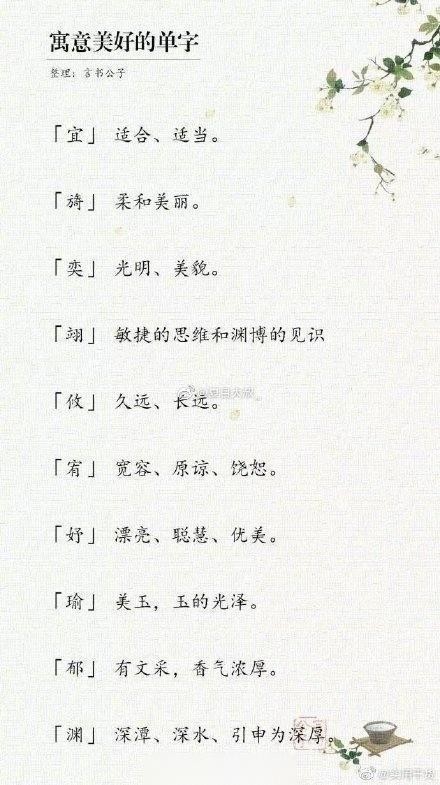 寓意美好的单字
整理：言书公子
「宜」 适合、适当。
「旖」 柔和美丽。
「奕」 光明、美貌。
「翊」 敏捷的思维和渊博的见识
「攸」 久远、长远。
「宥」 宽容、原谅、饶恕。
「妤」 漂亮、聪慧、优美。
「瑜」 美玉，玉的光泽。
「郁」 有文采，香气浓厚。
「渊」 深潭、深水、引申为深厚。
@实用干货